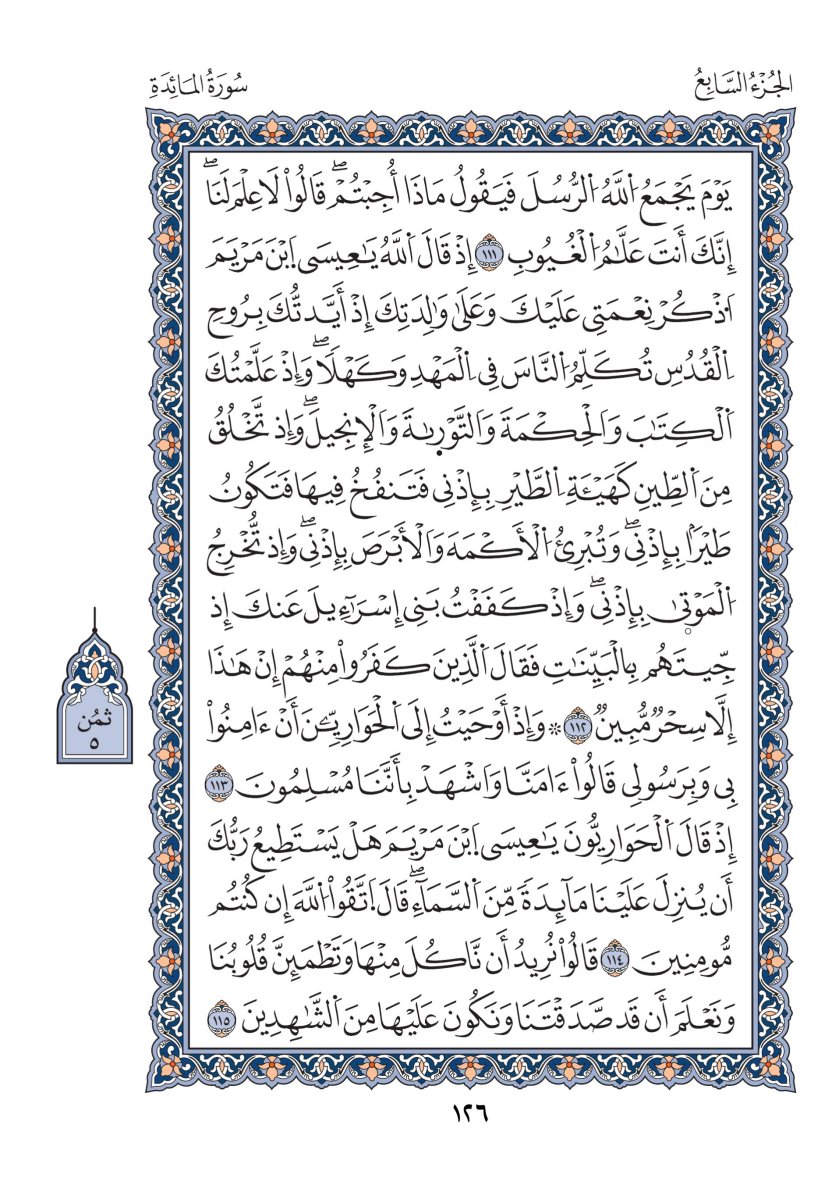 الجُزْءُ السَّابِعُ
سُورَةُ المَائِدَةِ
يَوْمَ يَجْمَعُ اُ۬للَّهُ اُ۬لرُّسُلَ فَيَقُولُ مَاذَا أُجِبْتُمْۖ قَالُواْ لَا عِلْمَ لَنَاۖ
إِنَّكَ أَنتَ عَلَّٰمُ اُ۬لْغُيُوبِ ١١١ إِذْ قَالَ اَ۬للَّهُ يَٰعِيسَى اَ۪بْنَ مَرْيَمَ
اَ۟ذْكُرْ نِعْمَتِى عَلَيْكَ وَعَلَىٰ وَٰلِدَتِكَ إِذْ أَيَّدتُّكَ بِرُوحِ
اِ۬لْقُدُسِ تُكَلِّمُ اُ۬لنَّاسَ فِى اِ۬لْمَهْدِ وَكَهْلًاۖ وَإِذْ عَلَّمْتُكَ
اَ۬لْكِتَٰبَ وَالْحِكْمَةَ وَالتَّوْر۪ىٰةَ وَالْإِنجِيلَۖ وَإِذ تَّخْلُقُ
مِنَ اَ۬لطِّينِ كَهَيْـَٔةِ اِ۬لطَّيْرِ بِإِذْنِى فَتَنفُخُ فِيهَا فَتَكُونُ
طَيْرَۢا بِإِذْنِىۖ وَتُبْرِئُ اُ۬لْأَكْمَهَ وَالْأَبْرَصَ بِإِذْنِىۖ وَإِذ تُّخْرِجُ
اُ۬لْمَوْت۪ىٰ بِإِذْنِىۖ وَإِذْ كَفَفْتُ بَنِى إِسْرَٰٓءِيلَ عَنكَ إِذ
جِّيتَهُم بِالْبَيِّنَٰتِ فَقَالَ اَ۬لَّذِينَ كَفَرُواْ مِنْهُمْ إِنْ هَٰذَا
إِلَّا سِحْرٌ مُّبِينٌ ١١٢ ۞ وَإِذْ أَوْحَيْتُ إِلَى اَ۬لْحَوَارِيِّـۧنَ أَنْ ءَامِنُواْ
بِى وَبِرَسُولِى قَالُواْ ءَامَنَّا وَاشْهَدْ بِأَنَّنَا مُسْلِمُونَ ١١٣
إِذْ قَالَ اَ۬لْحَوَارِيُّونَ يَٰعِيسَى اَ۪بْنَ مَرْيَمَ هَلْ يَسْتَطِيعُ رَبُّكَ
أَن يُنزِلَ عَلَيْنَا مَآئِدَةً مِّنَ اَ۬لسَّمَآءِۖ قَالَ اَ۪تَّقُواْ اُ۬للَّهَ إِن كُنتُم
مُّومِنِينَ ١١٤ قَالُواْ نُرِيدُ أَن نَّاكُلَ مِنْهَا وَتَطْمَئِنَّ قُلُوبُنَا
وَنَعْلَمَ أَن قَد صَّدَقْتَنَا وَنَكُونَ عَلَيْهَا مِنَ اَ۬لشَّٰهِدِينَ ١١٥
ثمُن
٥
١٢٦